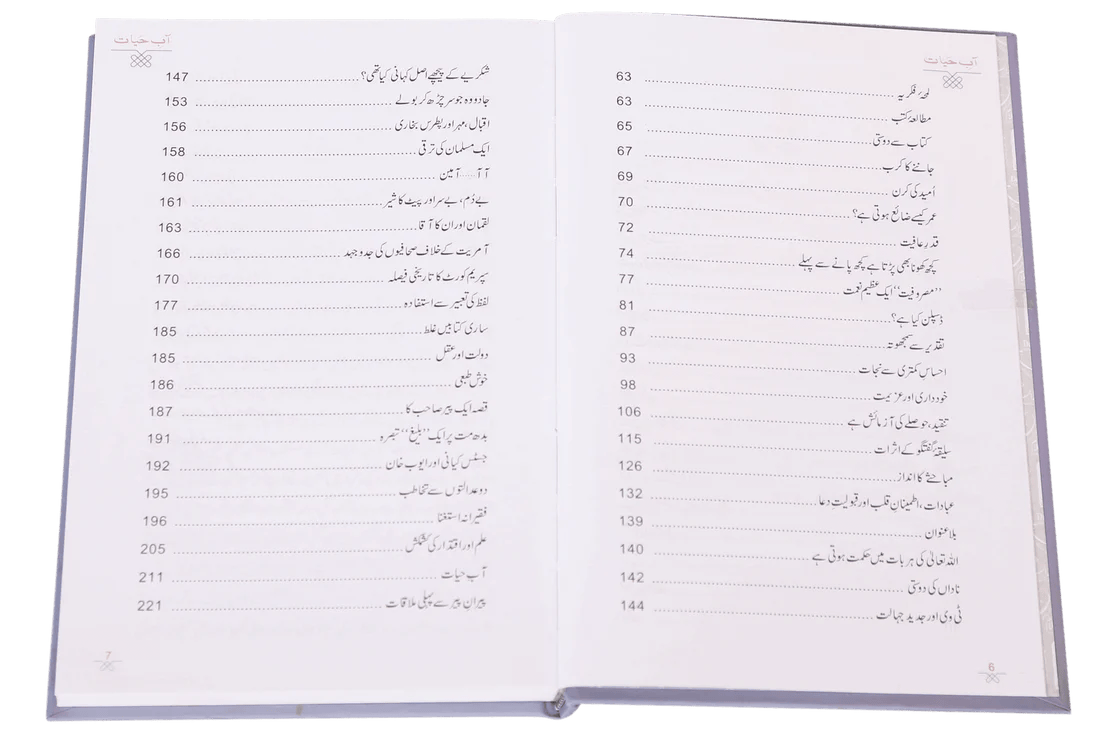 آب حیات
لمحۂ فکریہ ........ 63
مطالعۂ کتب ........ 63
کتاب سے دوستی ........ 65
جاننے کا کرب ........ 67
اُمید کی کرن ........ 69
عمر کیسے ضائع ہوتی ہے؟ ........ 70
قدرِ عافیت ........ 72
کچھ کھونا بھی پڑتا ہے کچھ پانے سے پہلے ........ 74
’’مصروفیت‘‘ ایک عظیم نعمت ........ 77
ڈسپلن کیا ہے؟ ........ 81
تقدیر سے سمجھوتہ ........ 87
احساسِ کمتری سے نجات ........ 93
خودداری اور عزیمت ........ 98
تنقید، حوصلے کی آزمائش ہے ........ 106
سلیقۂ گفتگو کے اثرات ........ 115
مباحثے کا انداز ........ 126
عبادات، اطمینانِ قلب اور قبولیتِ دعا ........ 132
بلاعنوان ........ 139
اللہ تعالیٰ کی ہر بات میں حکمت ہوتی ہے ........ 140
ناداں کی دوستی ........ 142
ٹی وی اور جدید جہالت ........ 144
6
آب حیات
شکریے کے پیچھے اصل کہانی کیا تھی؟ ........ 147
جادو وہ جو سر چڑھ کر بولے ........ 153
اقبال، مہر اور پطرس بخاری ........ 156
ایک مسلمان کی ترقی ........ 158
آ آ...... آمین ........ 160
بے دُم، بے سر اور پیٹ کا شیر ........ 161
لقمان اور ان کا آقا ........ 163
آمریت کے خلاف صحافیوں کی جدوجہد ........ 166
سپریم کورٹ کا تاریخی فیصلہ ........ 170
لفظ کی تعبیر سے استفادہ ........ 177
ساری کتابیں غلط ........ 185
دولت اور عقل ........ 185
خوش طبعی ........ 186
قصہ ایک پیر صاحب کا ........ 187
بدھ مت پر ایک ’’بلیغ‘‘ تبصرہ ........ 191
جسٹس کیانی اور ایوب خان ........ 192
دو عدالتوں سے تخاطب ........ 195
فقیرانہ استغنا ........ 196
علم اور اقتدار کی کشمکش ........ 205
آب حیات ........ 211
پیرانِ پیر سے پہلی ملاقات ........ 221
7